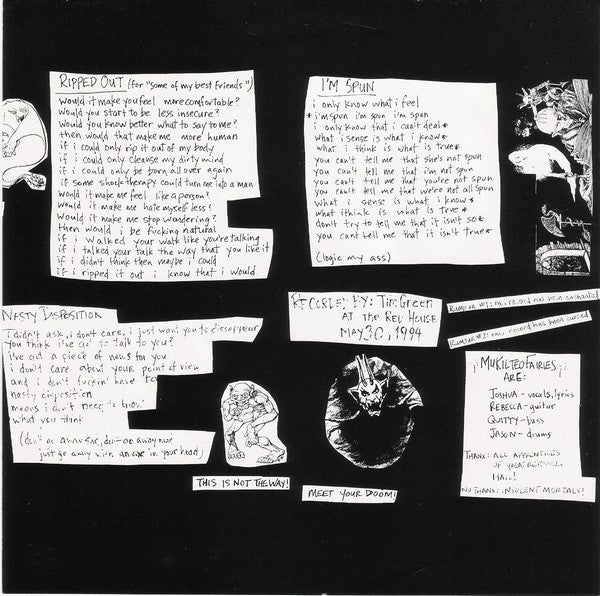 RIPPED OUT (for "some of my best friends")
would it make you feel more comfortable?
would you start to be less insecure?
would you know better what to say to me?
then would that make me more human
if i could only rip it out of my body
if i could only cleanse my dirty mind
if i could only be born all over again
if some shock therapy could turn me into a man
would it make me feel like a person?
would it make me hate myself less?
would it make me stop wondering?
then would i be fucking natural
if i walked your walk like you're talking
if i talked your talk the way that you like it
if i didn't think then maybe i could
if i ripped it out i know that i would
I'M SPUN
i only know what i feel
*i'm spun i'm spun i'm spun
i only know that i can't deal*
what i sense is what i know*
what i think is what is true*
you can't tell me that she's not spun
you can't tell me that i'm not spun
you can't tell me that you're not spun
you can't tell me that we're not all spun
what i sense is what i know*
what i think is what is true*
don't try to tell me that it isn't so*
you can't tell me that it isn't true*
(logic my ass)
NASTY DISPOSITION
i didn't ask, i don't care, i just want you to disappear
you think i've got to talk to you?
i've got a piece of news for you
i don't care about your point of view
and i don't fuckin' have to
nasty disposition
means i don't need to know
what you think
just go away with an axe in your head)
RECORDED BY: Tim Green
AT the Red House
MAY 30, 1994
Rumor #1: this record has been enchanted
Rumor #2: this record has been cursed
MUKILTEO FAIRIES
ARE:
JOSHUA - vocals, lyrics
REBECCA - guitar
QUITTY - bass
JASON - drums
THANX: ALL APPRENTICES
OF GREAT
HAIL!
NO THANX: INSOLENT MORTALS!
THIS IS NOT THE WAY!
MEET YOUR DOOM!